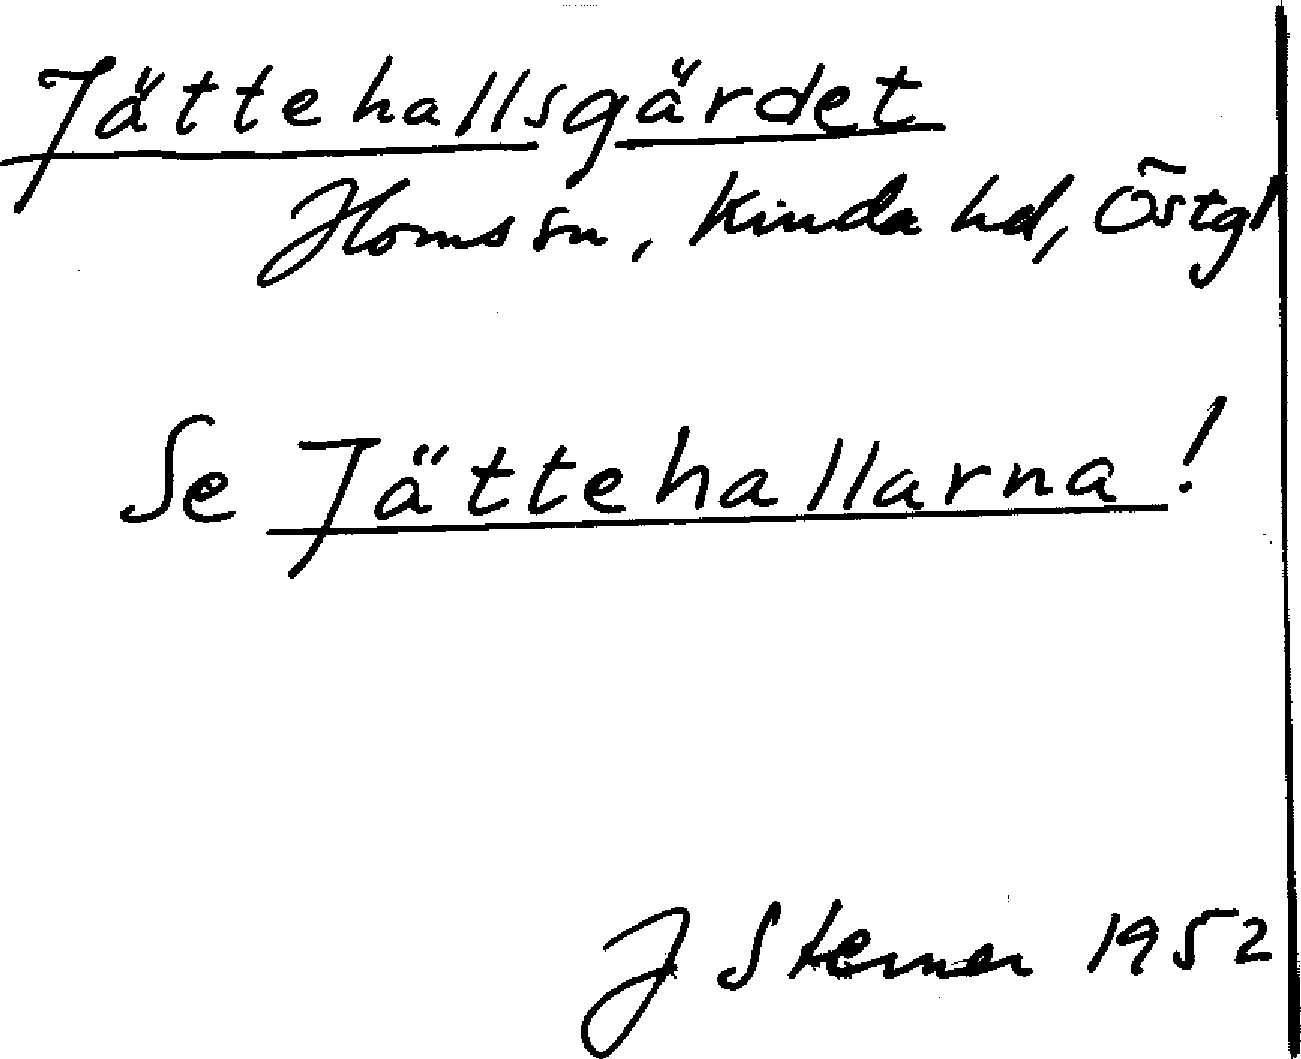 Jättehallsgärdet
Horns sn, Kinda hd, Östgl
Se Jättehallarna!
J Sterner 1952